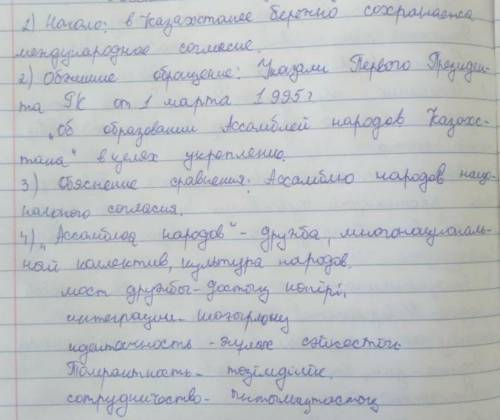 1) Начало: в Казахстане бережно сохраняется
международное согласие.
2) Обжшие обращение: Указами Первого Президен-
та РК от 1 марта 1995г
"Об образовании Ассамблей народов Казахс-
тана" в целях укреплению.
3) Обяснение сравнения: Ассамблю народов наци-
нального согласия.
4) "Ассамблея народов" - дружба, многонациональ-
ный коллектив, культура народов.
мост дружбы - достық көпірі,
интеграции -
идентичность - сәйкестік
Толерантность - төзімділік.
сотрудничество - ынтымақтастық